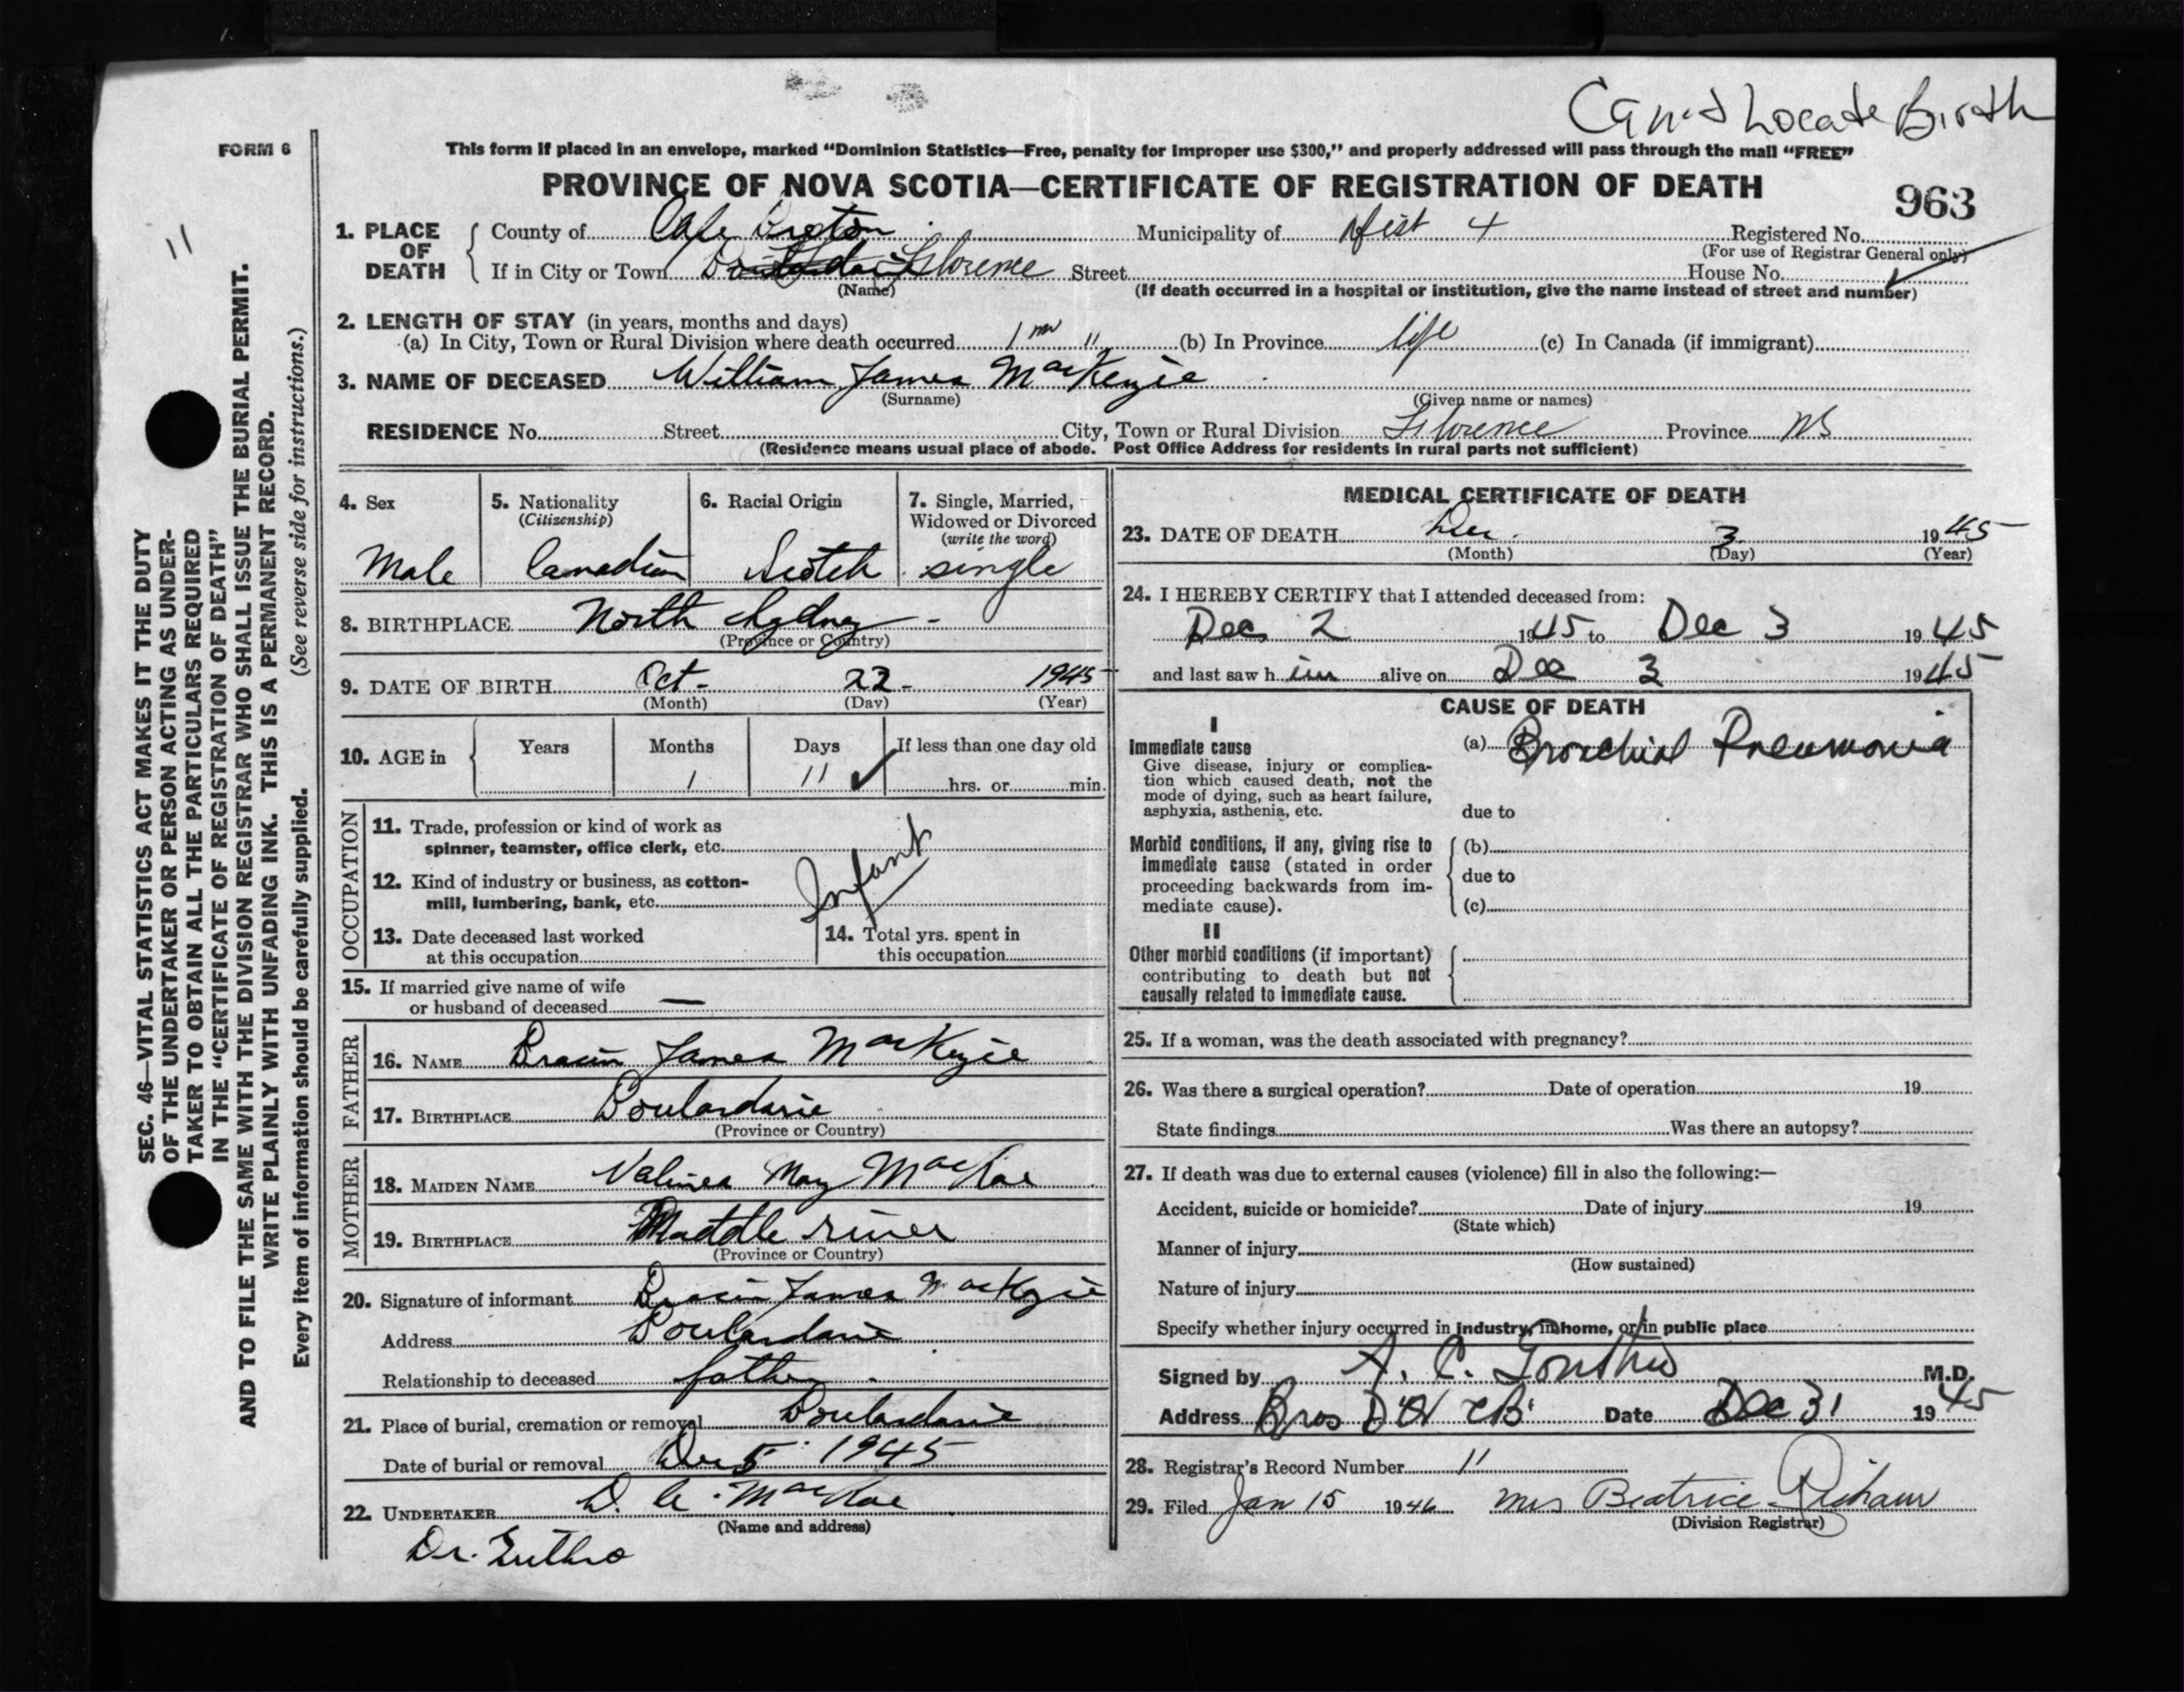 Can't Locate Birth
FORM 6
This form if placed in an envelope, marked “Dominion Statistics—Free, penalty for improper use $300,” and properly addressed will pass through the mail “FREE”
PROVINCE OF NOVA SCOTIA—CERTIFICATE OF REGISTRATION OF DEATH
963
11
1. PLACE OF DEATH
County of Cape Breton Municipality of Dist 4 Registered No.
(For use of Registrar General only)
If in City or Town Florence Street House No.
(Name) (If death occurred in a hospital or institution, give the name instead of street and number)
2. LENGTH OF STAY (in years, months and days)
(a) In City, Town or Rural Division where death occurred 1 m 11 (b) In Province life (c) In Canada (if immigrant)
3. NAME OF DECEASED William James MacKenzie
(Surname) (Given name or names)
RESIDENCE No. Street City, Town or Rural Division Florence Province NS
(Residence means usual place of abode. Post Office Address for residents in rural parts not sufficient)
4. Sex
Male
5. Nationality
(Citizenship)
Canadian
6. Racial Origin
Scotch
7. Single, Married,
Widowed or Divorced
(write the word)
single
8. BIRTHPLACE North Sydney -
(Province or Country)
9. DATE OF BIRTH Oct - 22 - 1945
(Month) (Day) (Year)
10. AGE in
Years Months Days If less than one day old
1 11 hrs. or min.
OCCUPATION
11. Trade, profession or kind of work as
spinner, teamster, office clerk, etc.
Infant
12. Kind of industry or business, as cotton-
mill, lumbering, bank, etc.
13. Date deceased last worked
at this occupation
14. Total yrs. spent in
this occupation
15. If married give name of wife
or husband of deceased —
FATHER
16. NAME James MacKenzie
17. BIRTHPLACE Boulardarie
(Province or Country)
MOTHER
18. MAIDEN NAME May MacRae
19. BIRTHPLACE Middle river
(Province or Country)
20. Signature of informant James MacKenzie
Address Boulardarie
Relationship to deceased father
21. Place of burial, cremation or removal Boulardarie
Date of burial or removal Dec 5 1945
22. UNDERTAKER D. A. MacRae
(Name and address)
Dr.
MEDICAL CERTIFICATE OF DEATH
23. DATE OF DEATH Dec. 3 1945
(Month) (Day) (Year)
24. I HEREBY CERTIFY that I attended deceased from:
Dec 2 1945 to Dec 3 1945
and last saw him alive on Dec 3 1945
CAUSE OF DEATH
I
Immediate cause
Give disease, injury or complica-
tion which caused death, not the
mode of dying, such as heart failure,
asphyxia, asthenia, etc.
(a) Bronchial Pneumonia
due to
Morbid conditions, if any, giving rise to
immediate cause (stated in order
proceeding backwards from im-
mediate cause).
(b)
due to
(c)
II
Other morbid conditions (if important)
contributing to death but not
causally related to immediate cause.
25. If a woman, was the death associated with pregnancy?
26. Was there a surgical operation? Date of operation 19
State findings Was there an autopsy?
27. If death was due to external causes (violence) fill in also the following:—
Accident, suicide or homicide? Date of injury 19
(State which)
Manner of injury
(How sustained)
Nature of injury
Specify whether injury occurred in industry, in home, or in public place
Signed by A. C. M.D.
Address Bras D'Or CB Date Dec 31 1945
28. Registrar's Record Number 11
29. Filed Jan 15 1946 Mrs Beatrice
(Division Registrar)
SEC. 46—VITAL STATISTICS ACT MAKES IT THE DUTY
OF THE UNDERTAKER OR PERSON ACTING AS UNDER-
TAKER TO OBTAIN ALL THE PARTICULARS REQUIRED
IN THE “CERTIFICATE OF REGISTRATION OF DEATH”
AND TO FILE THE SAME WITH THE DIVISION REGISTRAR WHO SHALL ISSUE THE BURIAL PERMIT.
WRITE PLAINLY WITH UNFADING INK. THIS IS A PERMANENT RECORD.
Every item of information should be carefully supplied. (See reverse side for instructions.)